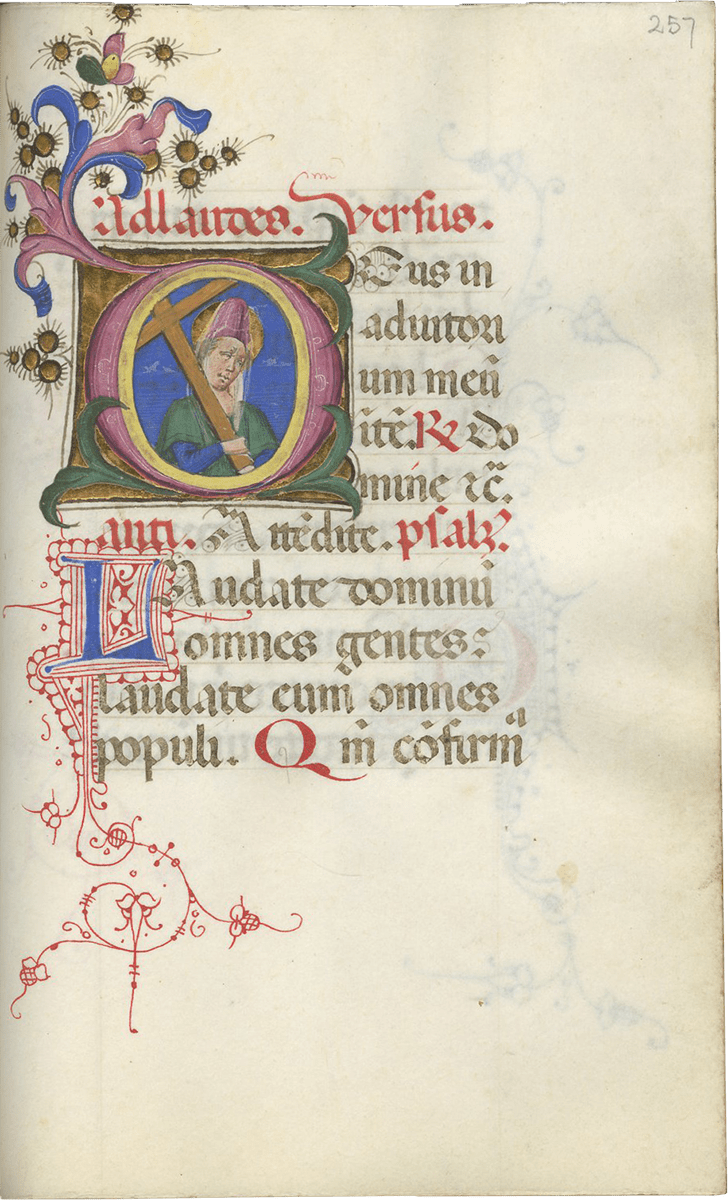 257
Ad laudes. versus.
Deus in
adiutori
um meū
ītē. ℟ Do
mine ⁊c̄.
anti. Attēdite. psalꝫ.
Laudate dominū
omnes gentes:
laudate eum omnes
populi. Qm̄ cōfirmᵃ